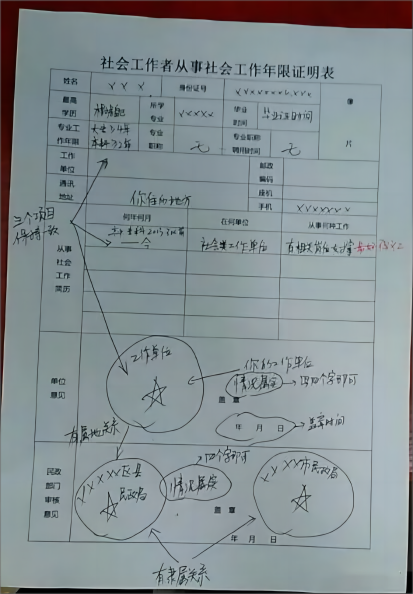 社会工作者从事社会工作年限证明表
姓名 XXX 身份证号 XXXXXXXX.XXX
最高学历 所学专业 XXXX 毕业时间 毕业证时间 像片
专业工作年限 大专3/4年 本科3/2年 专业职称 无 专业职称聘用时间 无
工作单位 邮政编码
通讯地址 你住的地方 座机
手机 XXXXXXX
三个项目保持一致
从事社会工作简历 何年何月 在何单位 从事何种工作
——今 社会类工作单位
单位意见
工作单位
你的工作单位
情况属实 写四个字即可
盖章
年 月 日 盖章时间
有属地关系
民政部门审核意见
XXXX区县民政局
四个字即可
情况属实
XXXX市民政局
盖章
年 月 日
有隶属关系